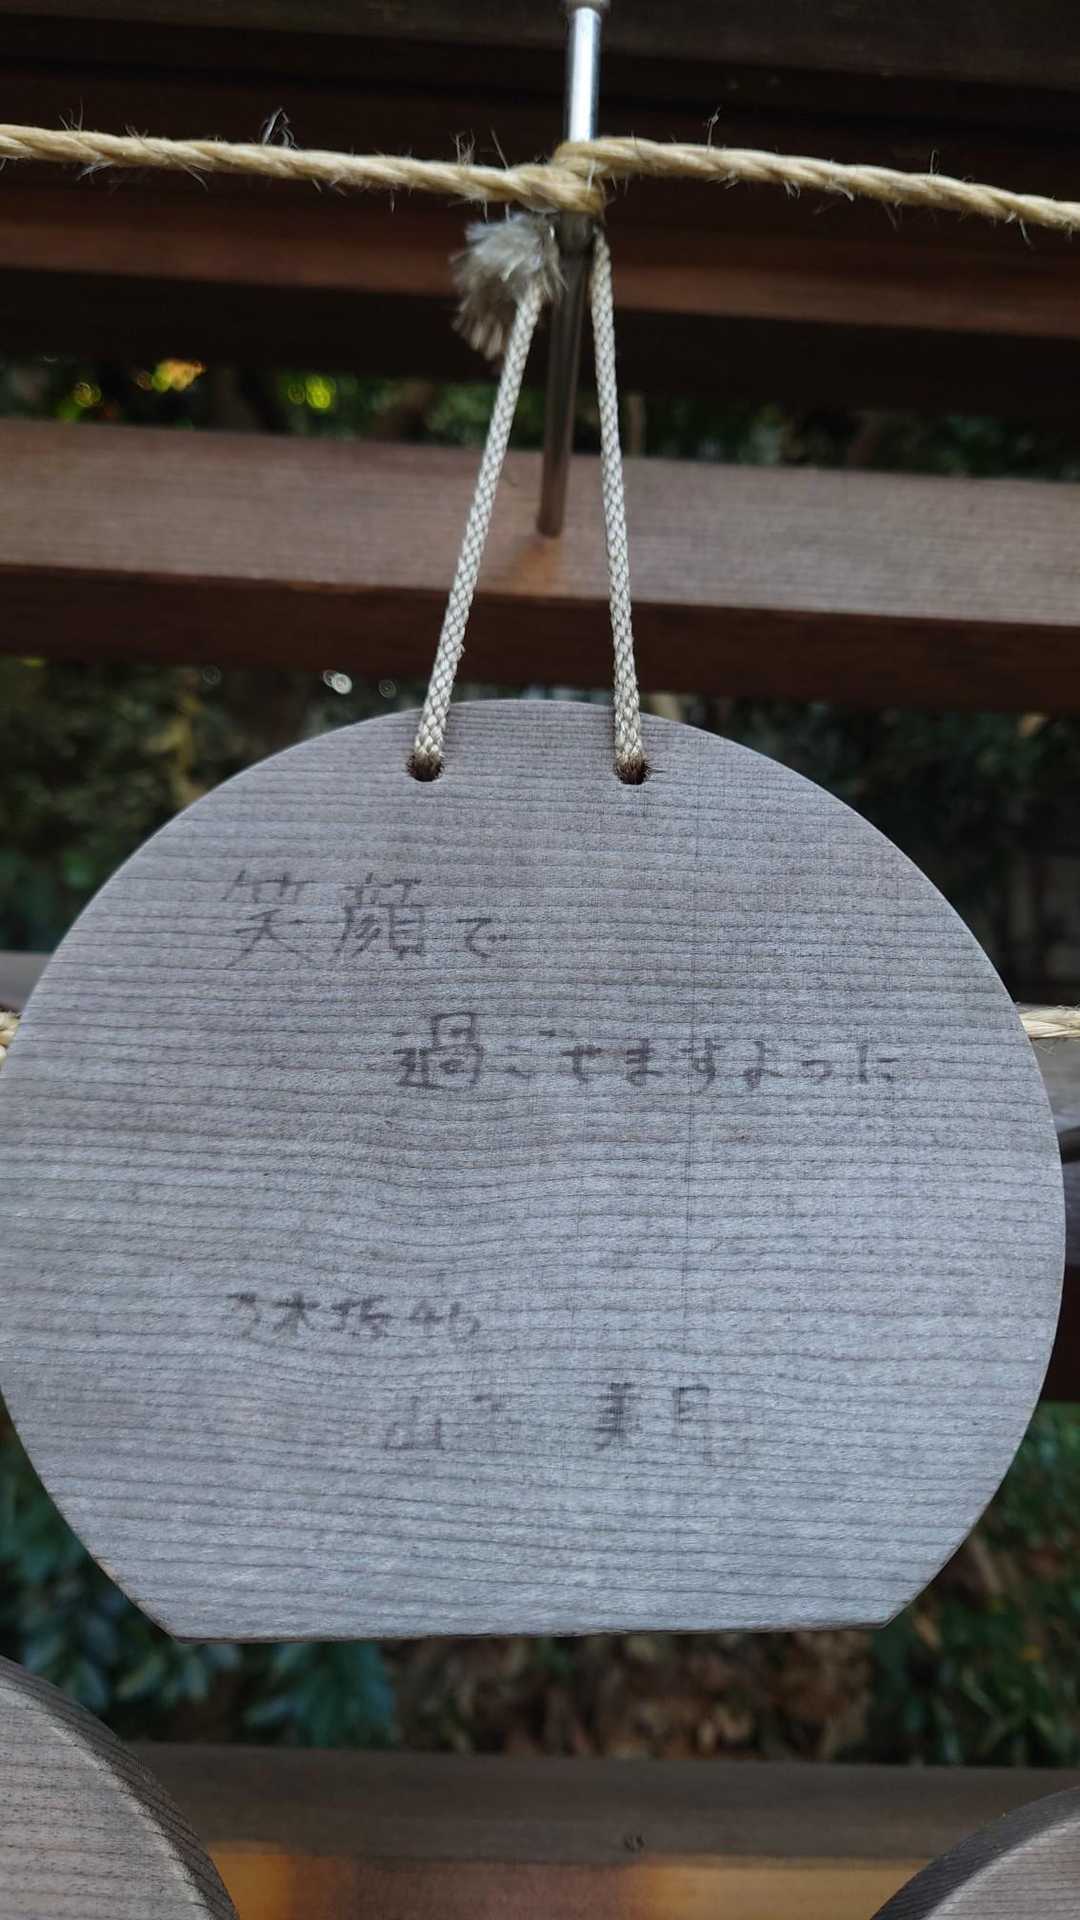 笑顔で
過ごせますように
乃木坂46
山下 美月